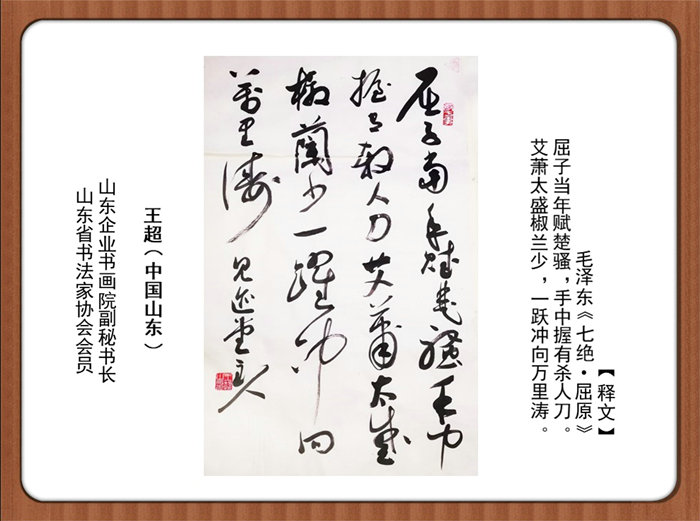 【释文】
毛泽东《七绝·屈原》
屈子当年赋楚骚，手中握有杀人刀。
艾萧太盛椒兰少，一跃冲向万里涛。
屈子當年賦楚騷手中
握有殺人刀艾蕭太盛
椒蘭少一躍冲向
萬里濤 堂主人
王超（中国山东）
山东企业书画院副秘书长
山东省书法家协会会员